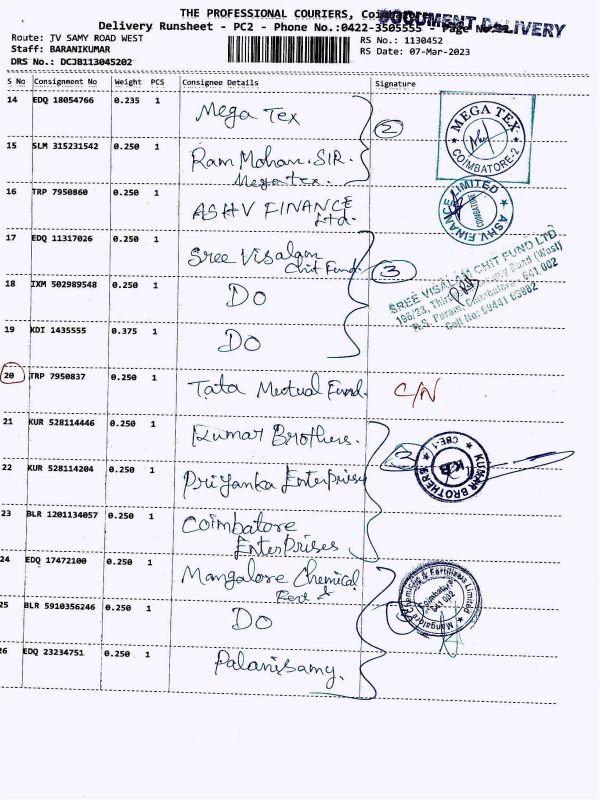 THE PROFESSIONAL COURIERS,
DOCUMENT DELIVERY
Delivery Runsheet - PC2 - Phone No.:0422-3505555 - Page
Route: JV SAMY ROAD WEST
RS No.: 1130452
Staff: BARANIKUMAR
RS Date: 07-Mar-2023
DRS No.: DCJB113045202
S No Consignment No Weight PCS Consignee Details Signature
14 EDQ 18054766 0.235 1 Mega Tex
2
MEGA TEX
COIMBATORE-2
15 SLM 315231542 0.250 1 Ram Mohan. SIR.
Megatex.
16 TRP 7950860 0.250 1 ASHV FINANCE
Ltd.
ASHV FINANCE LIMITED
17 EDQ 11317026 0.250 1 Sree Visalam
Chit Fund
3
SREE VISALAM CHIT FUND LTD
18 IXM 502989548 0.250 1 Do
19 KDI 1435555 0.375 1 Do
20 TRP 7950837 0.250 1 Tata Mutual Fund.
C/N
21 KUR 528114446 0.250 1 Kumar Brothers.
KUMAR BROTHERS
CBE-1
KB
22 KUR 528114204 0.250 1 Priyanka Enterprises
23 BLR 1201134057 0.250 1 Coimbatore
Enterprises
24 EDQ 17472100 0.250 1 Mangalore Chemical
Fert &
Mangalore Chemicals & Fertilizers Limited
Coimbatore
641 002
25 BLR 5910356246 0.250 1 Do
26 EDQ 23234751 0.250 1 Palanisamy.